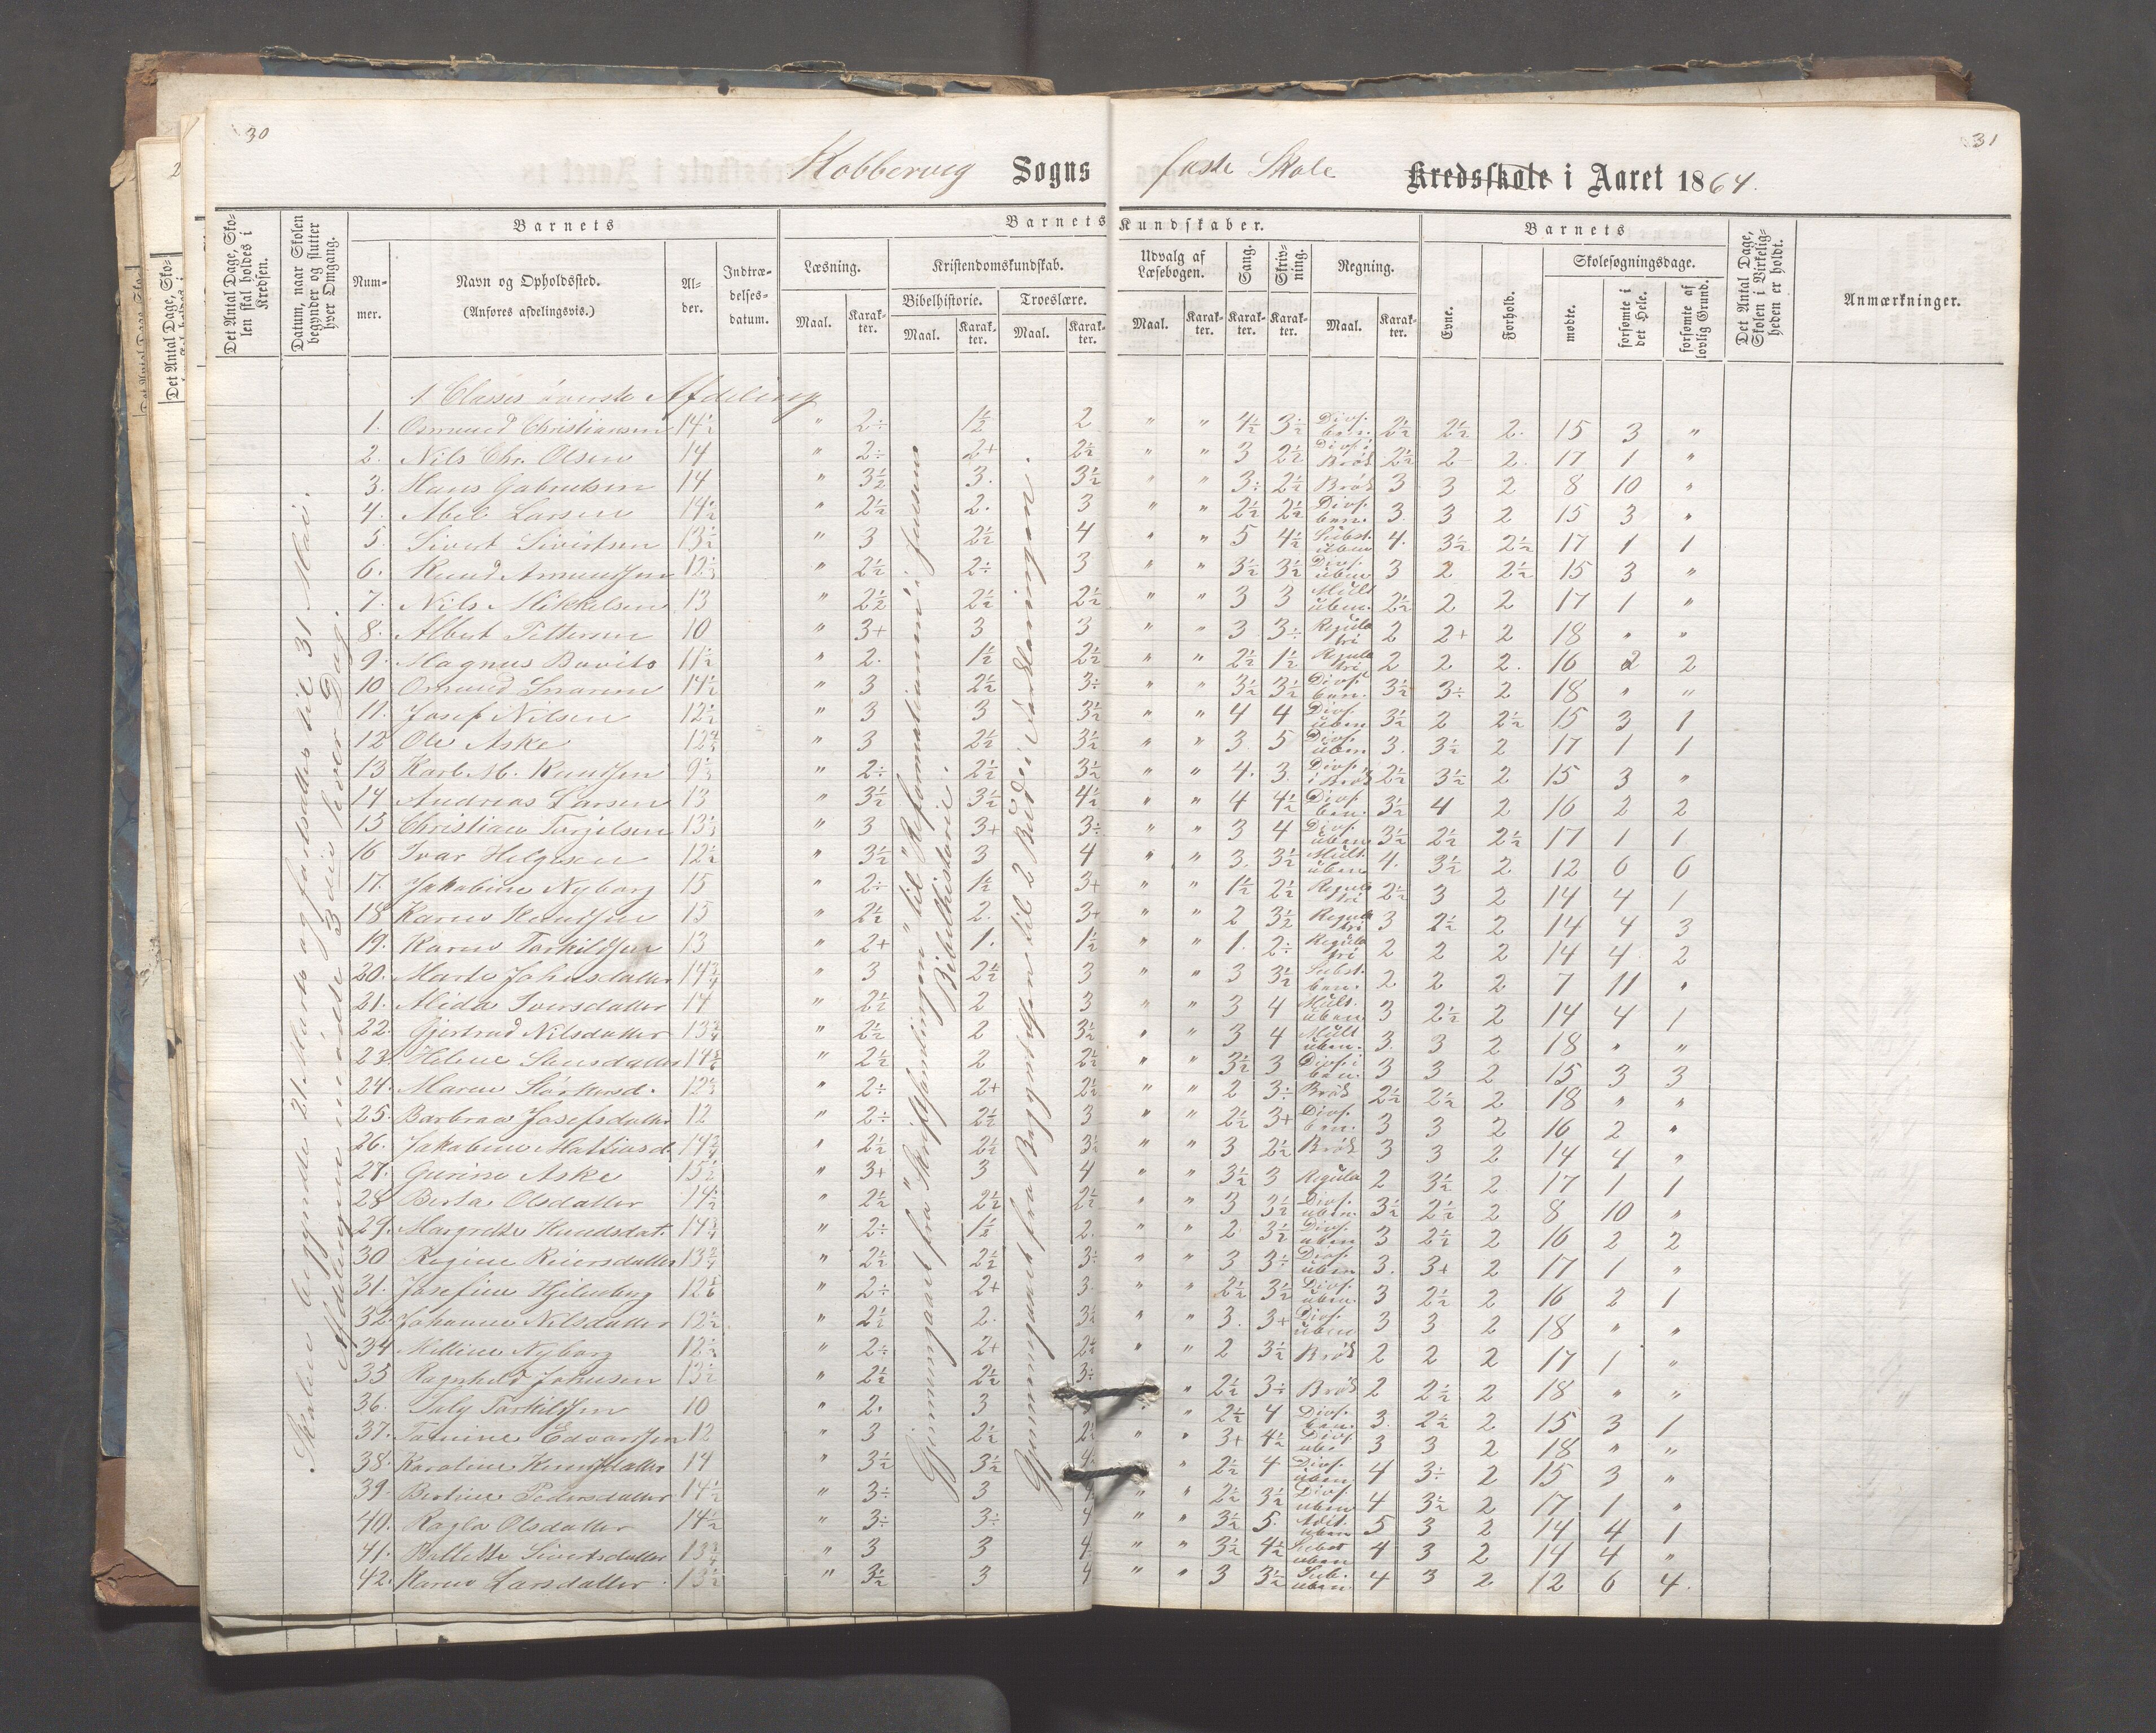 30
31
Kobbervig Sogns faste Skole Kredsskole i Aaret 1864.
Det Antal Dage, Skolen skal holdes i Kredsen.
Datum, naar Skolen begynder og slutter hver Omgang.
Barnets
Nummer.
Navn og Opholdssted.
(Anføres afdelingsvis.)
Alder.
Indtrædelsesdatum.
Barnets Kundskaber.
Læsning.
Maal.
Karakter.
Kristendomskundskab.
Bibelhistorie.
Maal.
Karakter.
Troeslære.
Maal.
Karakter.
Udvalg af Læsebogen.
Maal.
Karakter.
Sang.
Karakter.
Skrivning.
Karakter.
Regning.
Maal.
Karakter.
Barnets
Evne.
Forhold.
Skolesøgningsdage.
mødte.
forsømte i det Hele.
forsømte af lovlig Grund.
Det Antal Dage, Skolen i Virkeligheden er holdt.
Anmærkninger.
Skolen begyndte 21 Marts og fortsattes til 31 Mai.
Afdelingen mødte 3die hver Dag.
Gjennemgaaet fra "Skriftsamlingen" til "Reformationen" i Jensens Bibelhistorie.
Gjennemgaaet fra Begyndelsen til 2 Bud i Forklaringen.
1 Classes øverste Afdeling
1. Osmund Christiansen 14½ " 2÷ 1½ 2 " " 4½ 3½ Divs. ben. 2½ 2½ 2. 15 3 "
2. Nils Chr. Olsen 14 " 2÷ 2+ 2½ " " 3 2½ Divs. i Brøk 2½ 2 2. 17 1 "
3. Hans Gabrielsen 14 " 3½ 3. 3½ " " 3÷ 2½ Brøk 3 3 2 8 10 "
4. Abel Larsen 14½ " 2½ 2. 3 " " 2½ 2½ Divs. ben. 3. 3 2 15 3 "
5. Sivert Sivertsen 13½ " 3 2½ 4 " " 5 4½ Subst. üben 4. 3½ 2½ 17 1 1
6. Knud Amundsen 12½ " 2½ 2÷ 3 " " 3½ 3½ Divs. üben 3 2 2½ 15 3 "
7. Nils Mikkelsen 13 " 2½ 2½ 2½ " " 3 3 Mult. üben. 2½ 2 2 17 1 "
8. Albert Pettersen 10 " 3+ 3 3 " " 3 3÷ Regula tri 2 2+ 2 18 " "
9. Magnus Buvito 11½ " 2. 1½ 2½ " " 2½ 1½ Regula tri 2 2 2. 16 2 2
10 Osmund 14½ " 3 2½ 3÷ " " 3½ 3½ Divs. ben. 3½ 3÷ 2 18 " "
11. Josef Nilsen 12½ " 3 3 3½ " " 4 4 Divs. üben 3½ 2 2½ 15 3 1
12 Ole Aske " 3 2½ 3½ " " 3. 5 Divs. üben 3. 3½ 2 17 1 1
13 Karl M. Knudsen " 2÷ 2½ 3½ " " 4. 3. Divs. i Brøk 2½ 3½ 2 15 3 "
14 Andreas Larsen 13 " 3½ 3½ 4½ " " 4 4½ Divs. ben. 3½ 4 2 16 2 2
15 Christian Torjelsen " 3 3+ 3÷ " " 3 4 Divs. üben 3½ 2½ 2½ 17 1 1
16 Ivar Helgesen 12½ " 3½ 3 4 " " 3. 3½ Mult. üben 4. 3½ 2 12 6 6
17. Jakobine Nyborg 15 " 2÷ 1½ 3+ " " 1½ 2½ Regula tri 2½ 3 2 14 4 1
18 Karen Knudsen 15 " 2½ 2. 3+ " " 2 3½ Regula tri 3 2½ 2 14 4 3
19. Karen Torkildsen 13 " 2+ 1. 1½ " " 1. 2÷ Regula tri 2 2 2 14 4 2
20. Marte Johnsdatter 14¾ " 3 2½ 3 " " 3 3½ Subst. ben. 2 2 2 7 11 "
21. Alida Iversdatter 14 " 2½ 2 3 " " 3 4 Mult. üben 3 2½ 2 14 4 1
22. Gjertrud Nilsdatter 13¾ " 2½ 2 3½ " " 3 4 Mult üben. 3. 3 2 18 " "
23. Helene Stensdatter " 2½ 2 2½ " " 3½ 3 Divs. i ben. 3 3 2 15 3 3
24. Maren Størkersd. " 2÷ 2+ 2½ " " 2 3÷ Brøk 2½ 2½ 2 18 " "
25. Barbraa Josefsdatter 12 " 2÷ 2½ 3 " " 2½ 3+ Divs. ben. 3 3 2 16 2 "
26. Jakobine Mathiasd. 14¾ " 2½ 2½ 3½ " " 3 2½ Brøk 3 3 2 14 4 "
27. Gurine Aske 15½ " 3+ 3 4 " " 3½ 3 Regula 2 3½ 2 17 1 1
28 Berta Olsdatter 14½ " 2½ 2½ 2½ " " 3 3½ Divs. üben. 3½ 2½ 2 8 10 "
29. Margrethe Knudsdat. 14¾ " 2÷ 1½ 2. " " 2 3½ Divs. üben 3 2½ 2 16 2 2
30 Regine Reiersdatter 13¾ " 2½ 2½ 3÷ " " 3 3÷ Divs. üben 3. 3+ 2 17 1 "
31. Josefine Hjelmeberg " 2÷ 2+ 3. " " 2½ 3½ Divs. üben. 3 2½ 2 16 2 1
32. Johanne Nilsdatter 12½ " 2½ 2. 3½ " " 3. 3+ Divs. üben 3 3 2 18 " "
34 Melline Nyborg 12½ " 2÷ 2+ 2½ " " 2 3½ Brøk 2 2 2 17 1 "
35 Ragnhild Johnsen 13½ " 2½ 2½ 3÷ " 2½ 3÷ Brøk 2 2½ 2 18 " "
36. Torkildsen 10 " 2. 3 " " 2½ 4 Divs. ben. 3. 2½ 2 15 3 1
37. Tomine Edvardsen 12 " 3 2½ 2½ " " 3+ 4½ Divs. üben 3 3 2 18 " "
38. Karoline Knudsdatter 14 " 3½ 3½ 4. " 2½ 4 Divs. üben 4 3÷ 2 15 3 "
39. Bertine Pedersdatter 14½ " 3÷ 3 " " 2½ 3½ Divs. üben 4 3½ 2 17 1 "
40. Ragla Olsdatter 14½ " 3÷ 3÷ 4 " " 3½ 5. Adit. üben 5 3 2 14 4 1
41. Sivertsdatter 13¾ " 3 3 4. " " 3½ 4½ Subst üben 4 3 2 14 4 "
42. Karen Larsdatter 13½ " 3½ 3 4 " " 3 3½ Sub. üben. 4 3 2 12 6 4.